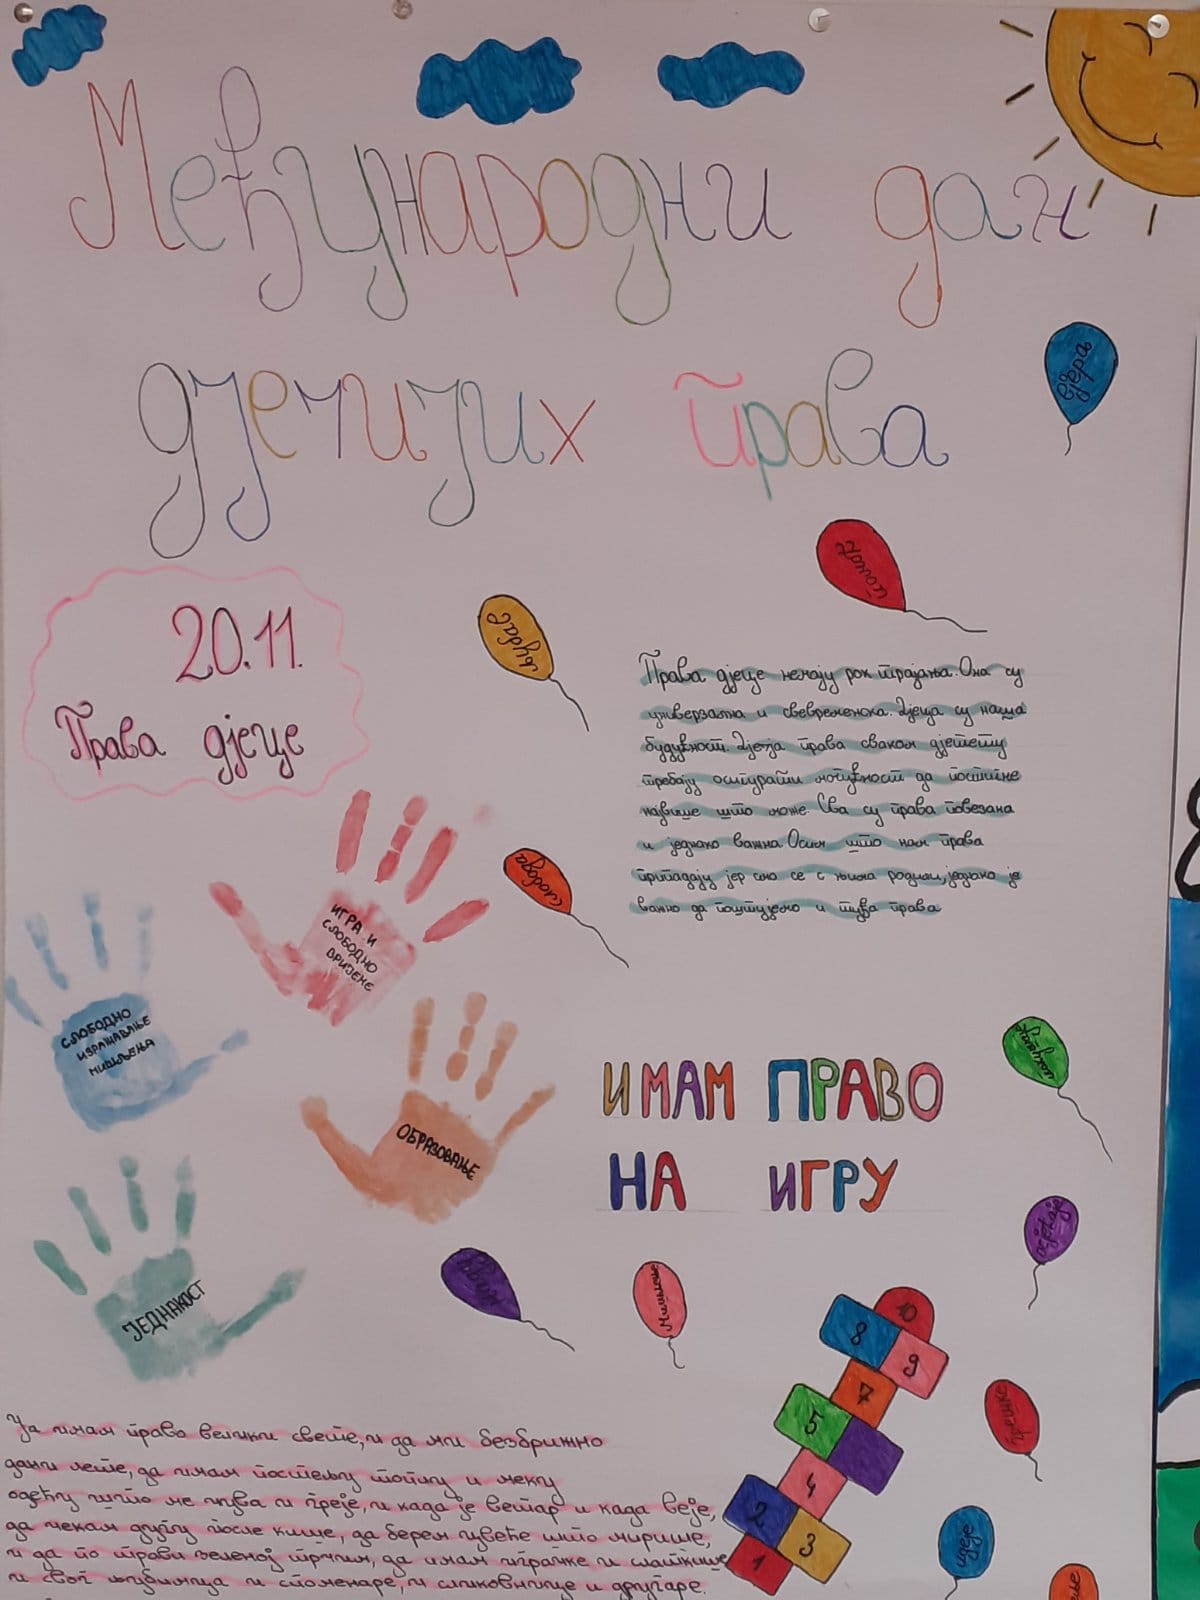 Међународни дан
дјечијих права
вјера
помоћ
љубав
20.11.
Права дјеце
Права дјеце немају рок трајања. Она су
универзална и свевременска. Дјеца су наша
будућност. Дјечја права сваком дјетету
требају осигурати могућност да постигне
највише што може. Сва су права повезана
и једнако важна. Осим што нам права
припадају јер смо се с њима родили, једнако је
важно да поштујемо и туђа права
слобода
ИГРА И
СЛОБОДНО
ВРИЈЕМЕ
СЛОБОДНО
ИЗРАЖАВАЊЕ
МИШЉЕЊА
ОБРАЗОВАЊЕ
ЈЕДНАКОСТ
ИМАМ ПРАВО
НА ИГРУ
осјећаје
нада
Мишљење
грешке
идеје
10
8
9
7
5
4
2
3
1
Ја имам право велики свете, и да ми безбрижно
дани лете, да имам постељу топлу и меку
одећу што ме чува и греје, и када је ветар и када веје,
да чекам дугу после кише, да берем цвеће што мирише,
и да по трави зеленој трчим, да имам играчке и слаткише
и свог љубимца и споменаре, и сликовнице и другаре.